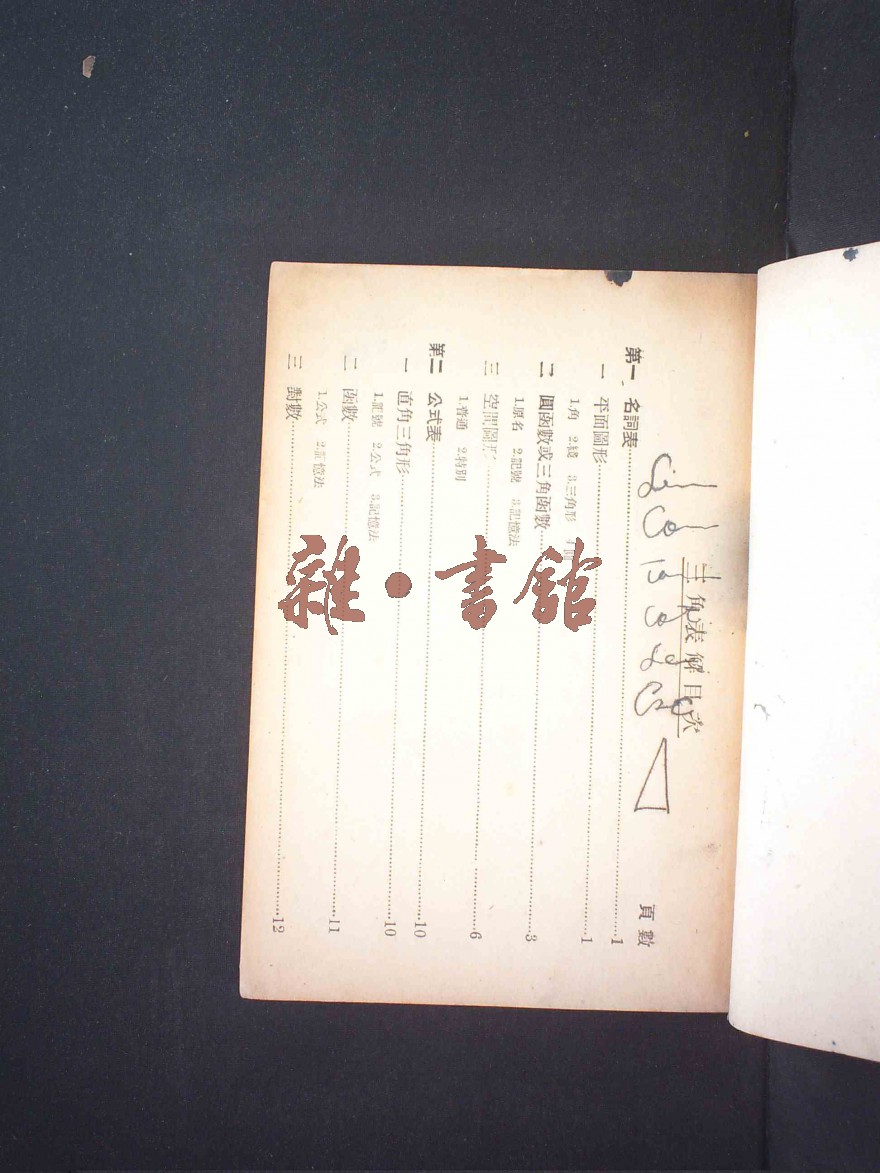 三角表解目次
頁數
第一 名詞表……1
一 平面圖形……1
1.角 2.綫 3.三角形
二 圓函數或三角函數……3
1.原名 2.記號 3.記憶法
三 空間圖形……6
1.普通 2.特別
第二 公式表……10
一 直角三角形……10
1.記號 2.公式 3.記憶法
二 函數……11
1.公式 2.記憶法
三 對數……12
雜·書館